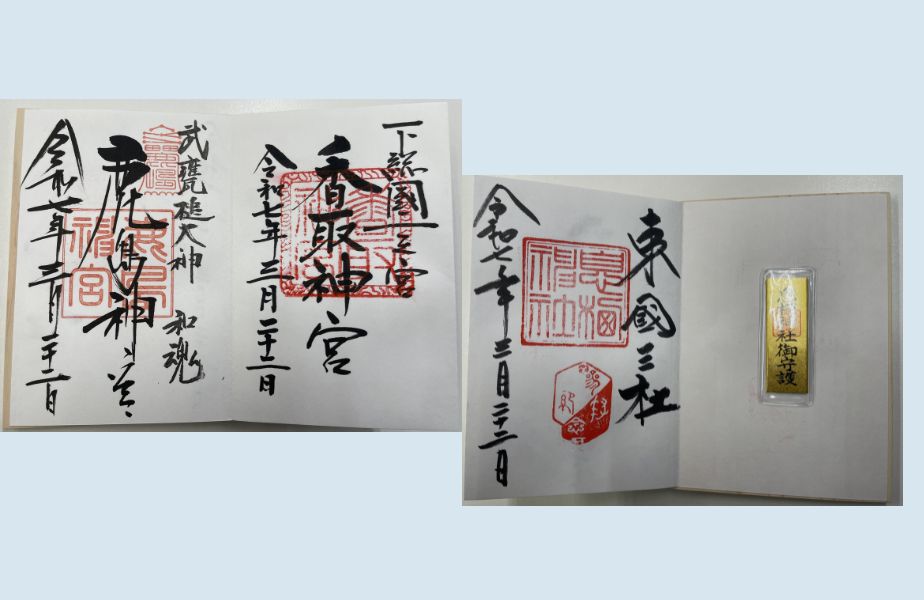 下総國一之宮
香取神宮
令和七年三月二十二日
武甕槌大神 和魂
鹿島神宮
鹿島神宮
令和七年三月二十二日
東國三社
息栖神社
令和七年三月二十二日
社御守護